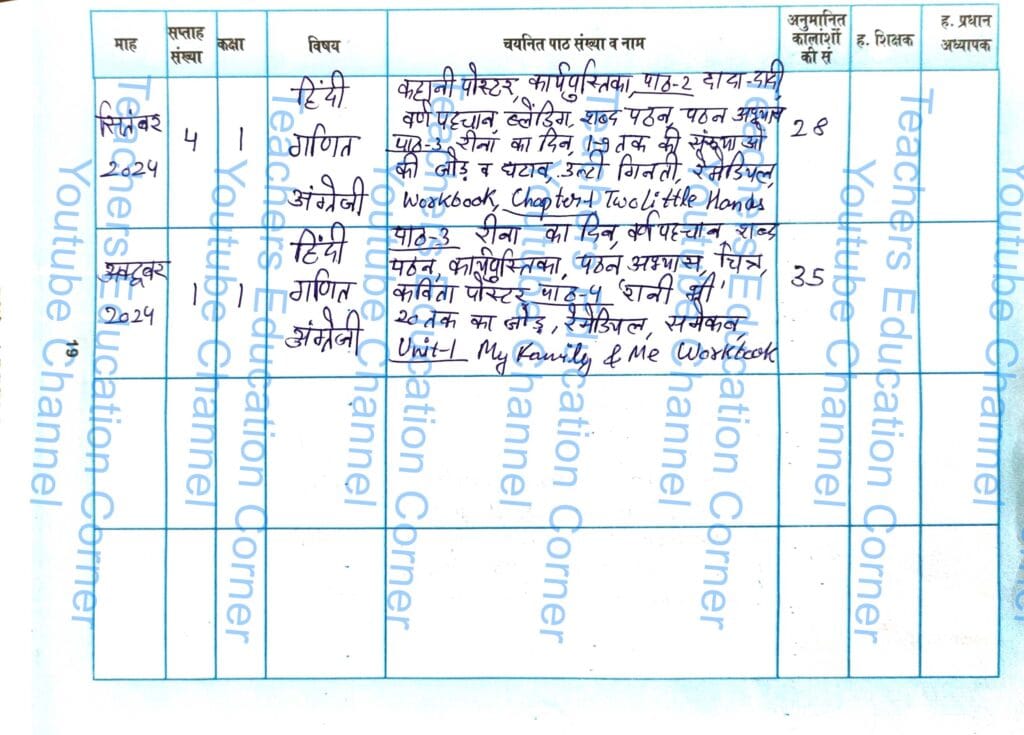 माह सप्ताह संख्या कक्षा विषय चयनित पाठ संख्या व नाम अनुमानित कालांशों की सं ह. शिक्षक ह. प्रधान अध्यापक
सितंबर 2024 4 1 28
हिंदी कहानी पोस्टर, कार्यपुस्तिका, पाठ-2 दादा-दादी,
वर्ण पहचान, ब्लैंडिंग, शब्द पठन, पठन अभ्यास
गणित पाठ-3 रीना का दिन, 1-9 तक की संख्याओं
की जोड़ व घटाव, उल्टी गिनती, रेमेडियल,
अंग्रेजी Workbook, Chapter-1 Two Little Hands
अक्टूबर 2024 1 1 35
हिंदी पाठ-3 रीना का दिन, वर्ण पहचान, शब्द
पठन, कार्यपुस्तिका, पठन अभ्यास, चित्र,
गणित कविता पोस्टर पाठ-4
20 तक का जोड़, रेमेडियल,
अंग्रेजी Unit-1 My Family & Me Workbook
19
Teachers Education Corner
Youtube Channel
Teachers Education Corner
Youtube Channel
Teachers Education Corner
Youtube Channel
Teachers Education Corner
Youtube Channel